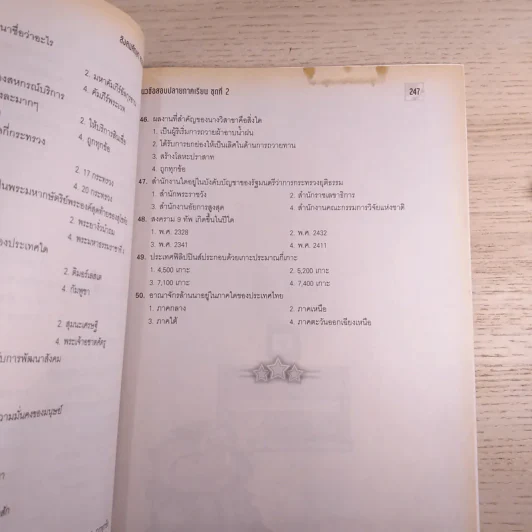 นาชื่อว่าอะไร
2. มหาคัมภีร์อัลกุรอาน
4. คัมภีร์พระเวท
องสหกรณ์บริการ
2. ให้บริการสินเชื่อ
4. ถูกทุกข้อ
กี่กระทรวง
2. 17 กระทรวง
4. 20 กระทรวง
เป็นพระมหากษัตริย์พระองค์สุดท้ายของสุโขทัย
2. พระยางั่วนำถม
องประเทศใด
2. ติมอร์เลสเต
4. กัมพูชา
2. สุมนะเศรษฐี
4. พระเจ้าอชาตศัตรู
กับการพัฒนาสังคม
ความมั่นคงของมนุษย์
แนวข้อสอบปลายภาคเรียน ชุดที่ 2
247
46. ผลงานที่สำคัญของนางวิสาขาคือสิ่งใด
1. เป็นผู้ริเริ่มการถวายผ้าอาบน้ำฝน
2. ได้รับการยกย่องให้เป็นเลิศในด้านการถวายทาน
3. สร้างโลหะปราสาท
4. ถูกทุกข้อ
47. สำนักงานใดอยู่ในบังคับบัญชาของรัฐมนตรีว่าการกระทรวงยุติธรรม
1. สำนักพระราชวัง 2. สำนักราชเลขาธิการ
3. สำนักงานอัยการสูงสุด 4. สำนักงานคณะกรรมการวิจัยแห่งชาติ
48. สงคราม 9 ทัพ เกิดขึ้นในปีใด
1. พ.ศ. 2328 2. พ.ศ. 2432
3. พ.ศ. 2341 4. พ.ศ. 2411
49. ประเทศฟิลิปปินส์ประกอบด้วยเกาะประมาณกี่เกาะ
1. 4,500 เกาะ 2. 5,200 เกาะ
3. 7,100 เกาะ 4. 7,400 เกาะ
50. อาณาจักรล้านนาอยู่ในภาคใดของประเทศไทย
1. ภาคกลาง 2. ภาคเหนือ
3. ภาคใต้ 4. ภาคตะวันออกเฉียงเหนือ